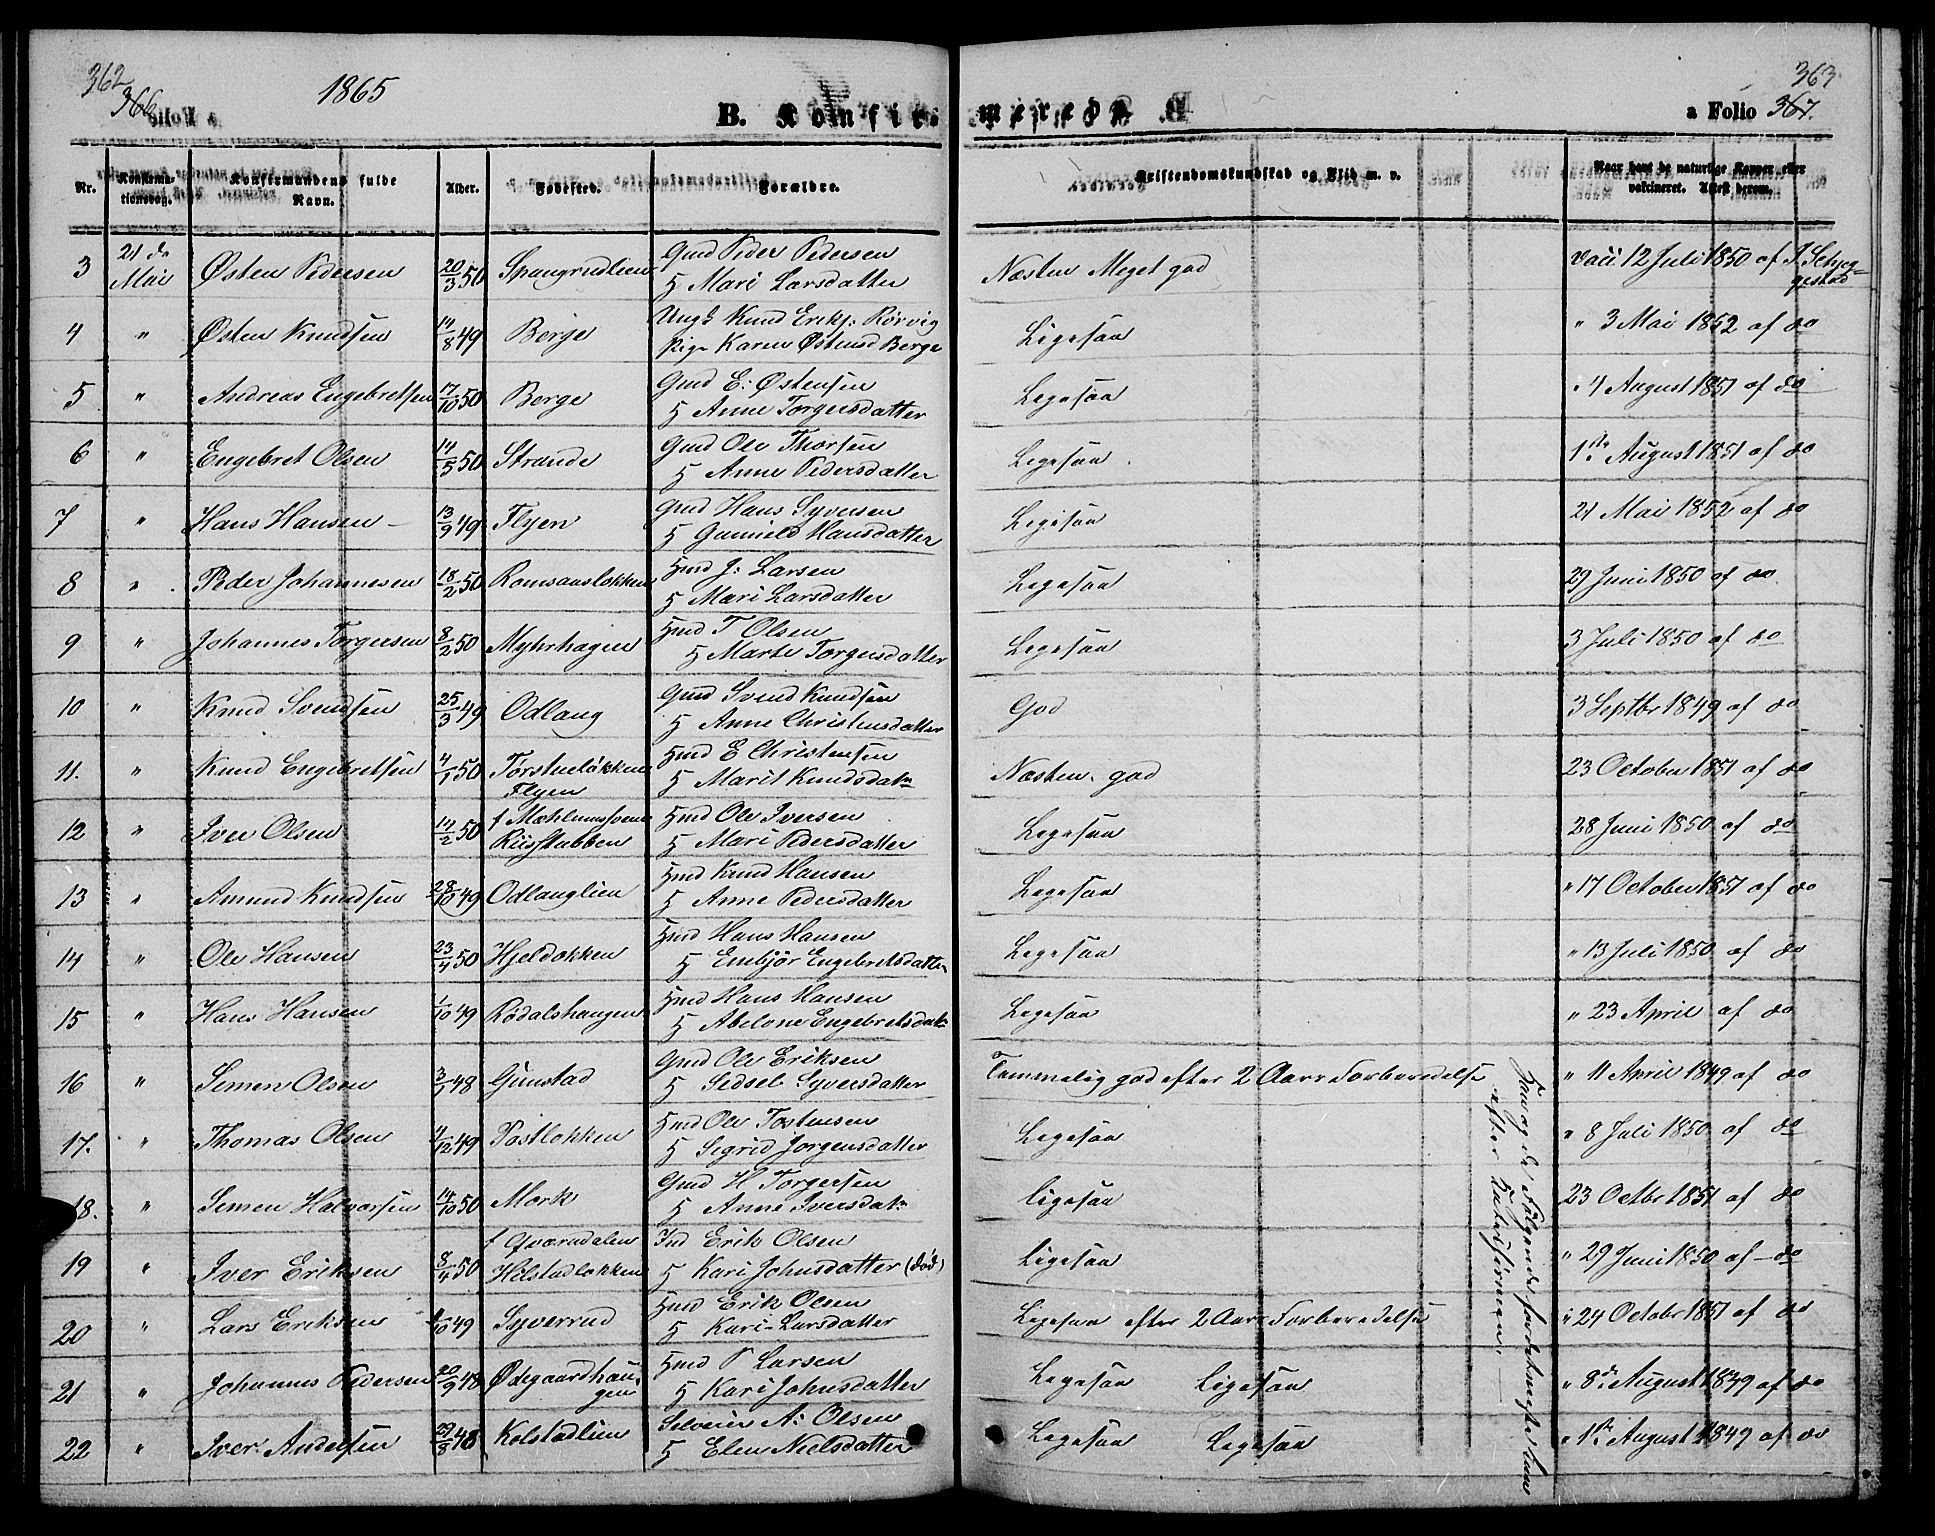 362 366 1865
B. Konfir-
Nr. Konfirma-tionsdag. Konfirmandens fulde Navn. Alder. Fødested. Forældre.
3 21de Mai Østen Pedersen 20/3 50 Spangrudlien Gmd Peder Pedersen
H Mari Larsdatter
4 " Østen Knudsen 14/8 49 Berge Ungk Knud Eriks: Rørvig
Pige Karen Østensd Berge
5 " Andreas Engebretsen 17/10 50 Berge Gmd E: Østensen
H Anne Torgersdatter
6 " Engebret Olsen 14/5 50 Strande Gmd Ole Thorsen
H Anne Pedersdatter
7 " Hans Hansen 13/9 49 Flyen Gmd Hans Syversen
H Gunnild Hansdatter
8 " Peder Johannesen 18/2 50 Romsaasløkken Hmd J: Larsen
H Mari Larsdatter
9 " Johannes Torgersen 8/2 50 Myhrhagen Hmd T Olsen
H Marte Torgersdatter
10 " Knud Svendsen 25/3 49 Odlaug Gmd Svend Knudsen
H Anne Christensdatter
11. " Knud Engebretsen 4/1 50 Torstueløkken Flyen Hmd E Christensen
H Marit Knudsdatr
12 " Iver Olsen 14/2 50 f Mæhlumsveen Riisstubben Hmd Ole Iversen
H Mari Pedersdatter
13 " Amund Knudsen 28/10 49 Odlauglien Hmd Knud Hansen
H Anne Pedersdatter
14 " Ole Hansen 23/4 50 Hjeldokken Hmd Hans Hansen
H Embjør Engebretsdatter
15 " Hans Hansen 1/10 49 Rødalshaugen Hmd Hans Hansen
H Abelone Engebretsdatr
16 " Semen Olsen 3/1 48 Gunstad Gmd Ole Eriksen
H Sedsel Syversdatter
17. " Thomas Olsen 4/12 49 Tostløkken Hmd Ole Tostensen
H Sigrid Jørgensdatter
18. " Semen Halvorsen 14/10 50 Mork Gmd H Torgersen
H Anne Iversdatr
19 " Iver Eriksen 8/4 50 f Qværndalen Hilstadløkken Ind Erik Olsen
H Kari Johnsdatter (død)
20 " Lars Eriksen 10 49 Syverrud Hmd Erik Olsen
H Kari Larsdatter
21 " Johannes Pedersen 20/9 48 Ødegaardhaugen Hmd P Larsen
H Kari Johnsdatter
22 " Iver Andersen 29/8 48 Kolstadlien Selveier A: Olsen
H Elen Nielsdatter
363
merede. a Folio 367.
Kristendomskundskab og Flid m. v. Naar havt de naturlige Kopper eller vaccineret. Attest derom.
Næsten Meget god vaci 12 Juli 1850 af J. Schjeg-gestad
Ligesaa " 3 Mai 1852 af do
Ligesaa " 4 August 1851 af do
Ligesaa 1ste August 1851 af do
Ligesaa 21 Mai 1852 af do
Ligesaa 29 Juni 1850 af do
Ligesaa 3 Juli 1850 af do
God 3 Septbr 1849 af do
Næsten god 23 October 1851 af do
Ligesaa 28 Juni 1850 af do
Ligesaa " 17 October 1851 af do
Ligesaa " 13 Juli 1850 af do
Ligesaa " 23 April af do
Temmelig god efter 2 Aars Forberedelse " 11 April 1849 af do
Ligesaa " 8 Juli 1850 af do
Ligesaa 23 Octbr 1851 af do
Ligesaa " 29 Juni 1850 af do
Ligesaa efter 2 Aars Forberedelse " 24 Octobr 1851 af do
Ligesaa Ligesaa " 8de August 1849 af do
Ligesaa Ligesaa " 1ste August 1849 af do